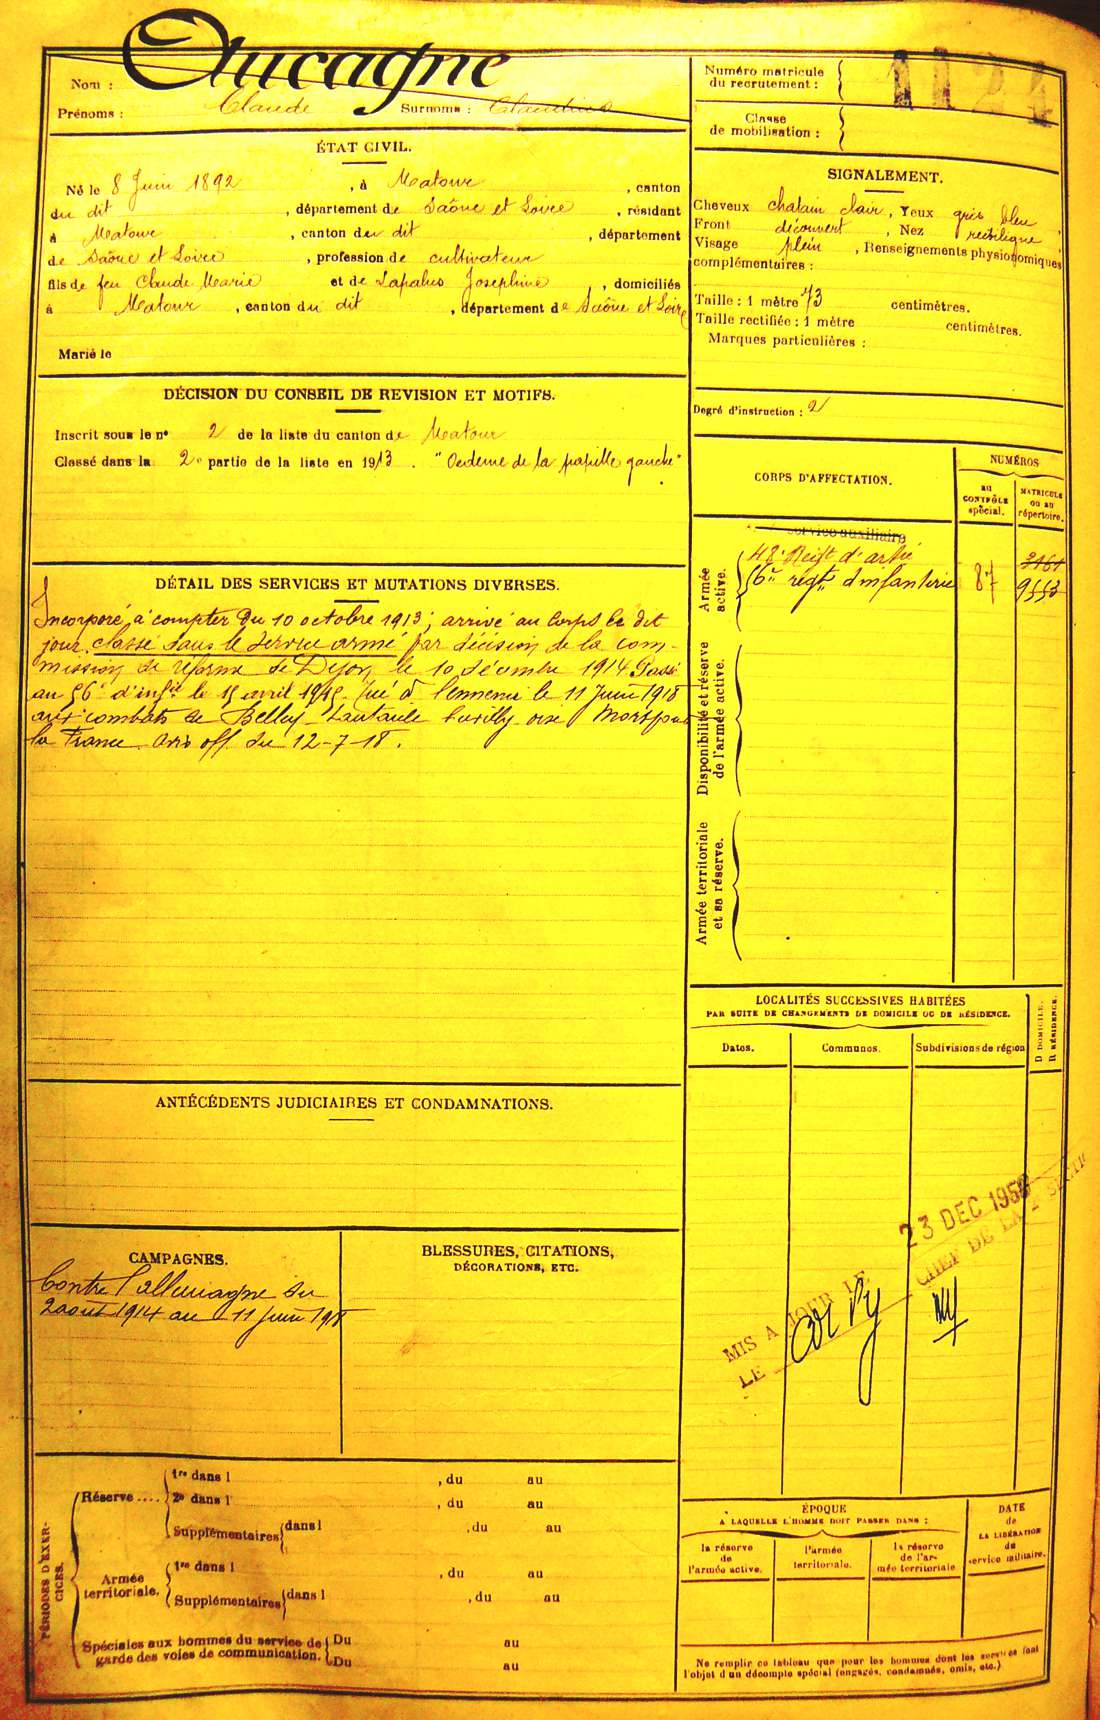 Nom : Aucagne
Prénoms : Claude Surnoms : Claudius
ÉTAT CIVIL.
Né le 8 Juin 1892, à Matour, canton
du dit, département de Saône et Loire, résidant
à Matour, canton du dit, département
de Saône et Loire, profession de cultivateur
fils de feu Claude Marie et de Lapalus Joséphine, domiciliés
à Matour, canton du dit, département de Saône et Loire
Marié le
DÉCISION DU CONSEIL DE REVISION ET MOTIFS.
Inscrit sous le n° 2 de la liste du canton de Matour
Classé dans la 2e partie de la liste en 1913. "Oedeme de la papille gauche"
DÉTAIL DES SERVICES ET MUTATIONS DIVERSES.
Incorporé à compter du 10 octobre 1913; arrivé au corps le dit
jour. classé dans le service armé par décision de la com-
mission de réforme de Dijon le 10 décembre 1914. Passé
au 56e d'inf le 15 avril 1915. Tué à l'ennemi le 11 Juin 1918
aux combats de Belloy oise Mort pour
la France avis off du 12-7-18.
ANTÉCÉDENTS JUDICIAIRES ET CONDAMNATIONS.
CAMPAGNES.
Contre l'allemagne du
2 aout 1914 au 11 juin 1918
BLESSURES, CITATIONS,
DÉCORATIONS, ETC.
PÉRIODES D'EXER-
CICES.
Réserve ....
1re dans l , du au
2e dans l , du au
Supplémentaires dans l , du au
Armée
territoriale.
1re dans l , du au
Supplémentaires dans l , du au
Spéciales aux hommes du service de
garde des voies de communication.
Du au
Du au
Numéro matricule
du recrutement : 1124
Classe
de mobilisation :
SIGNALEMENT.
Cheveux chatain clair, Yeux gris bleu
Front découvert, Nez rectiligne
Visage plein, Renseignements physionomiques
complémentaires :
Taille : 1 mètre 73 centimètres.
Taille rectifiée : 1 mètre centimètres.
Marques particulières :
Degré d'instruction : 2
CORPS D'AFFECTATION.
NUMÉROS
au
CONTRÔLE
spécial.
MATRICULE
ou au
répertoire.
Armée
active.
service auxiliaire
48e Regt d'artie 3161
56e regt d'infanterie 87 9553
Disponibilité et réserve
de l'armée active.
Armée territoriale
et sa réserve.
LOCALITÉS SUCCESSIVES HABITÉES
PAR SUITE DE CHANGEMENTS DE DOMICILE OU DE RÉSIDENCE.
Dates.
Communes.
Subdivisions de région
D DOMICILE.
R RÉSIDENCE.
23 DEC 1956
MIS A JOUR LE
LE CHEF DE LA
ÉPOQUE
A LAQUELLE L'HOMME DOIT PASSER DANS :
la réserve
de
l'armée active.
l'armée
territoriale.
la réserve
de l'ar-
mée territoriale
DATE
de
LA LIBÉRATION
du
service militaire.
Ne remplir ce tableau que pour les hommes dont les services font
l'objet d'un décompte spécial (engagés, condamnés, omis, etc.)